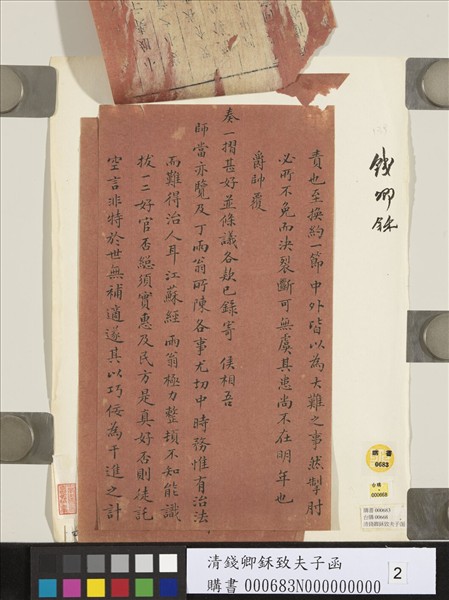 責也至換約一節中外皆以為大難之事然掣肘
必所不免而決裂斷可無虞其患尚不在明年也
爵帥覆
奏一摺甚好並條議各款已錄寄 侯相吾
師當亦覽及丁雨翁所陳各事尤切中時務惟有治法
而難得治人耳江蘇經雨翁極力整頓不知能識
拔一二好官否總須實惠及民方是真好否則徒託
空言非特於世無補適遂其以巧佞為干進之計
錢卿鉌
購書
0683
台購
000668
購書 000683
台購 00668
清錢卿鉌致夫子函
清錢卿鉌致夫子函
購書 000683N000000000
2